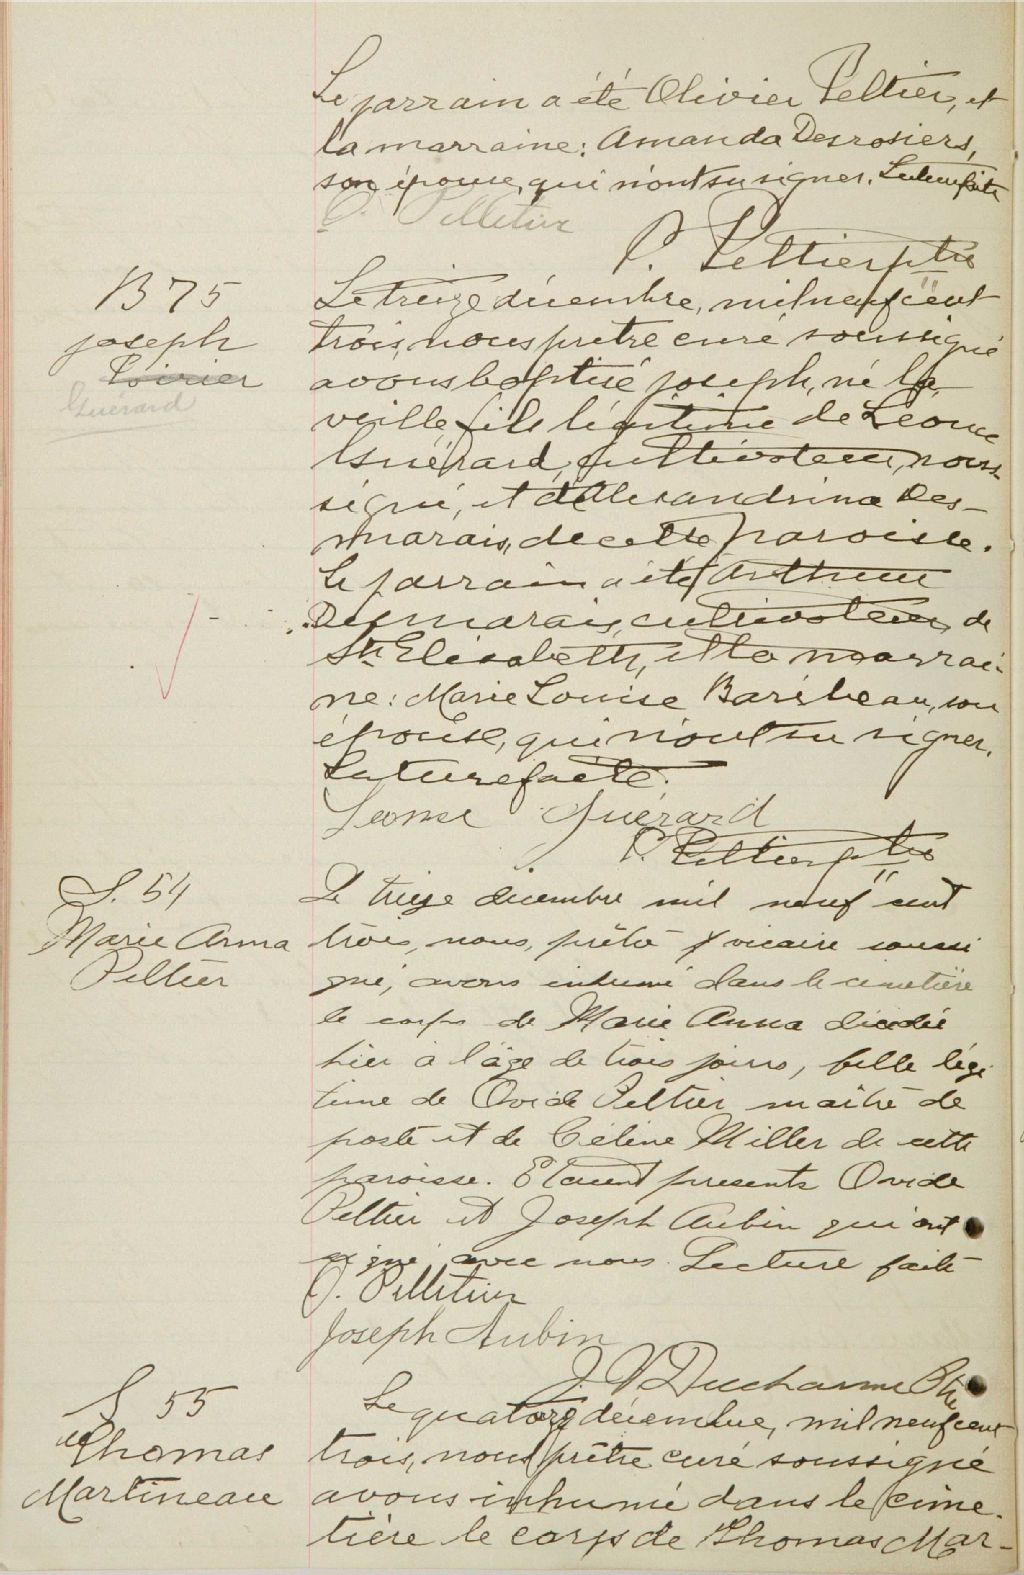 Le parrain a été Olivier Peltier, et
la marraine: Amanda Desrosiers,
son épouse, qui n'ont su signer. Lecture faite
O. Pelletier
P. Peltier ptre
B 75
joseph
Poirier
Guérard
Le treize décembre, mil neuf cent
trois, nous prêtre curé soussigné
avons baptisé joseph, né la
veille, fils légitime de Léonce
Guérard, cultivateur, sous-
signé, et d'Alexandrina Des-
marais, de cette paroisse.
Le parrain a été Arthur
Desmarais, cultivateur, de
Ste Elisabeth, et la marrai-
ne: Marie Louise Baribeau, son
épouse, qui n'ont su signer.
Lecture faite.
Leonse Guérard
P. Peltier ptre
S. 54
Marie Anna
Peltier
Le treize decembre mil neuf cent
trois, nous, prêtre vicaire soussi
gné, avons inhumé dans le cimetière
le corps de Marie Anna décédée
hier à l'âge de trois jours, fille légi
time de Ovide Peltier maître de
poste et de Céline Miller de cette
paroisse. Etaient presents Ovide
Peltier et Joseph Aubin qui ont
signé avec nous. Lecture faite
O. Pelletier
Joseph Aubin
J. V. Ducharme Ptre
S 55
Thomas
Martineau
Le quatorze décembre, mil neuf cent
trois, nous prêtre curé soussigné
avons inhumé dans le cime-
tière le corps de Thomas Mar-